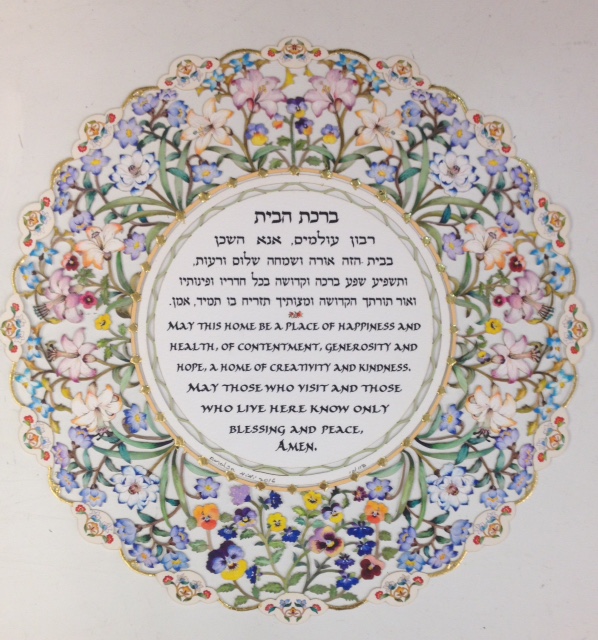 ברכת הבית
רבון עולמים, אנא השכן
בבית הזה אורה ושמחה שלום ורעות,
ותשפיע שפע ברכה וקדושה בכל חדריו ופינותיו
ואור תורתך הקדושה ומצותיך תזריח בו תמיד, אמן.
MAY THIS HOME BE A PLACE OF HAPPINESS AND
HEALTH, OF CONTENTMENT, GENEROSITY AND
HOPE, A HOME OF CREATIVITY AND KINDNESS.
MAY THOSE WHO VISIT AND THOSE
WHO LIVE HERE KNOW ONLY
BLESSING AND PEACE,
AMEN.